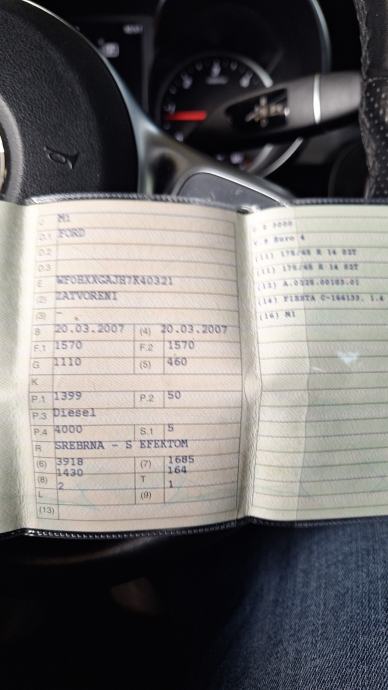 J M1
D.1 FORD
D.2
D.3
E WF0HXXGAJH7K40321
(2) ZATVORENI
(3) -
B 20.03.2007 (4) 20.03.2007
F.1 1570 F.2 1570
G 1110 (5) 460
K
P.1 1399 P.2 50
P.3 Diesel
P.4 4000 S.1 5
R SREBRNA - S EFEKTOM
(6) 3918 (7) 1685
(8) 1430 T 164
L 2 (9) 1
(13)
V.9 Euro 4
(11) 175/65 R 14 82T
(11) 175/65 R 14 82T
(14) FIESTA
(16) M1